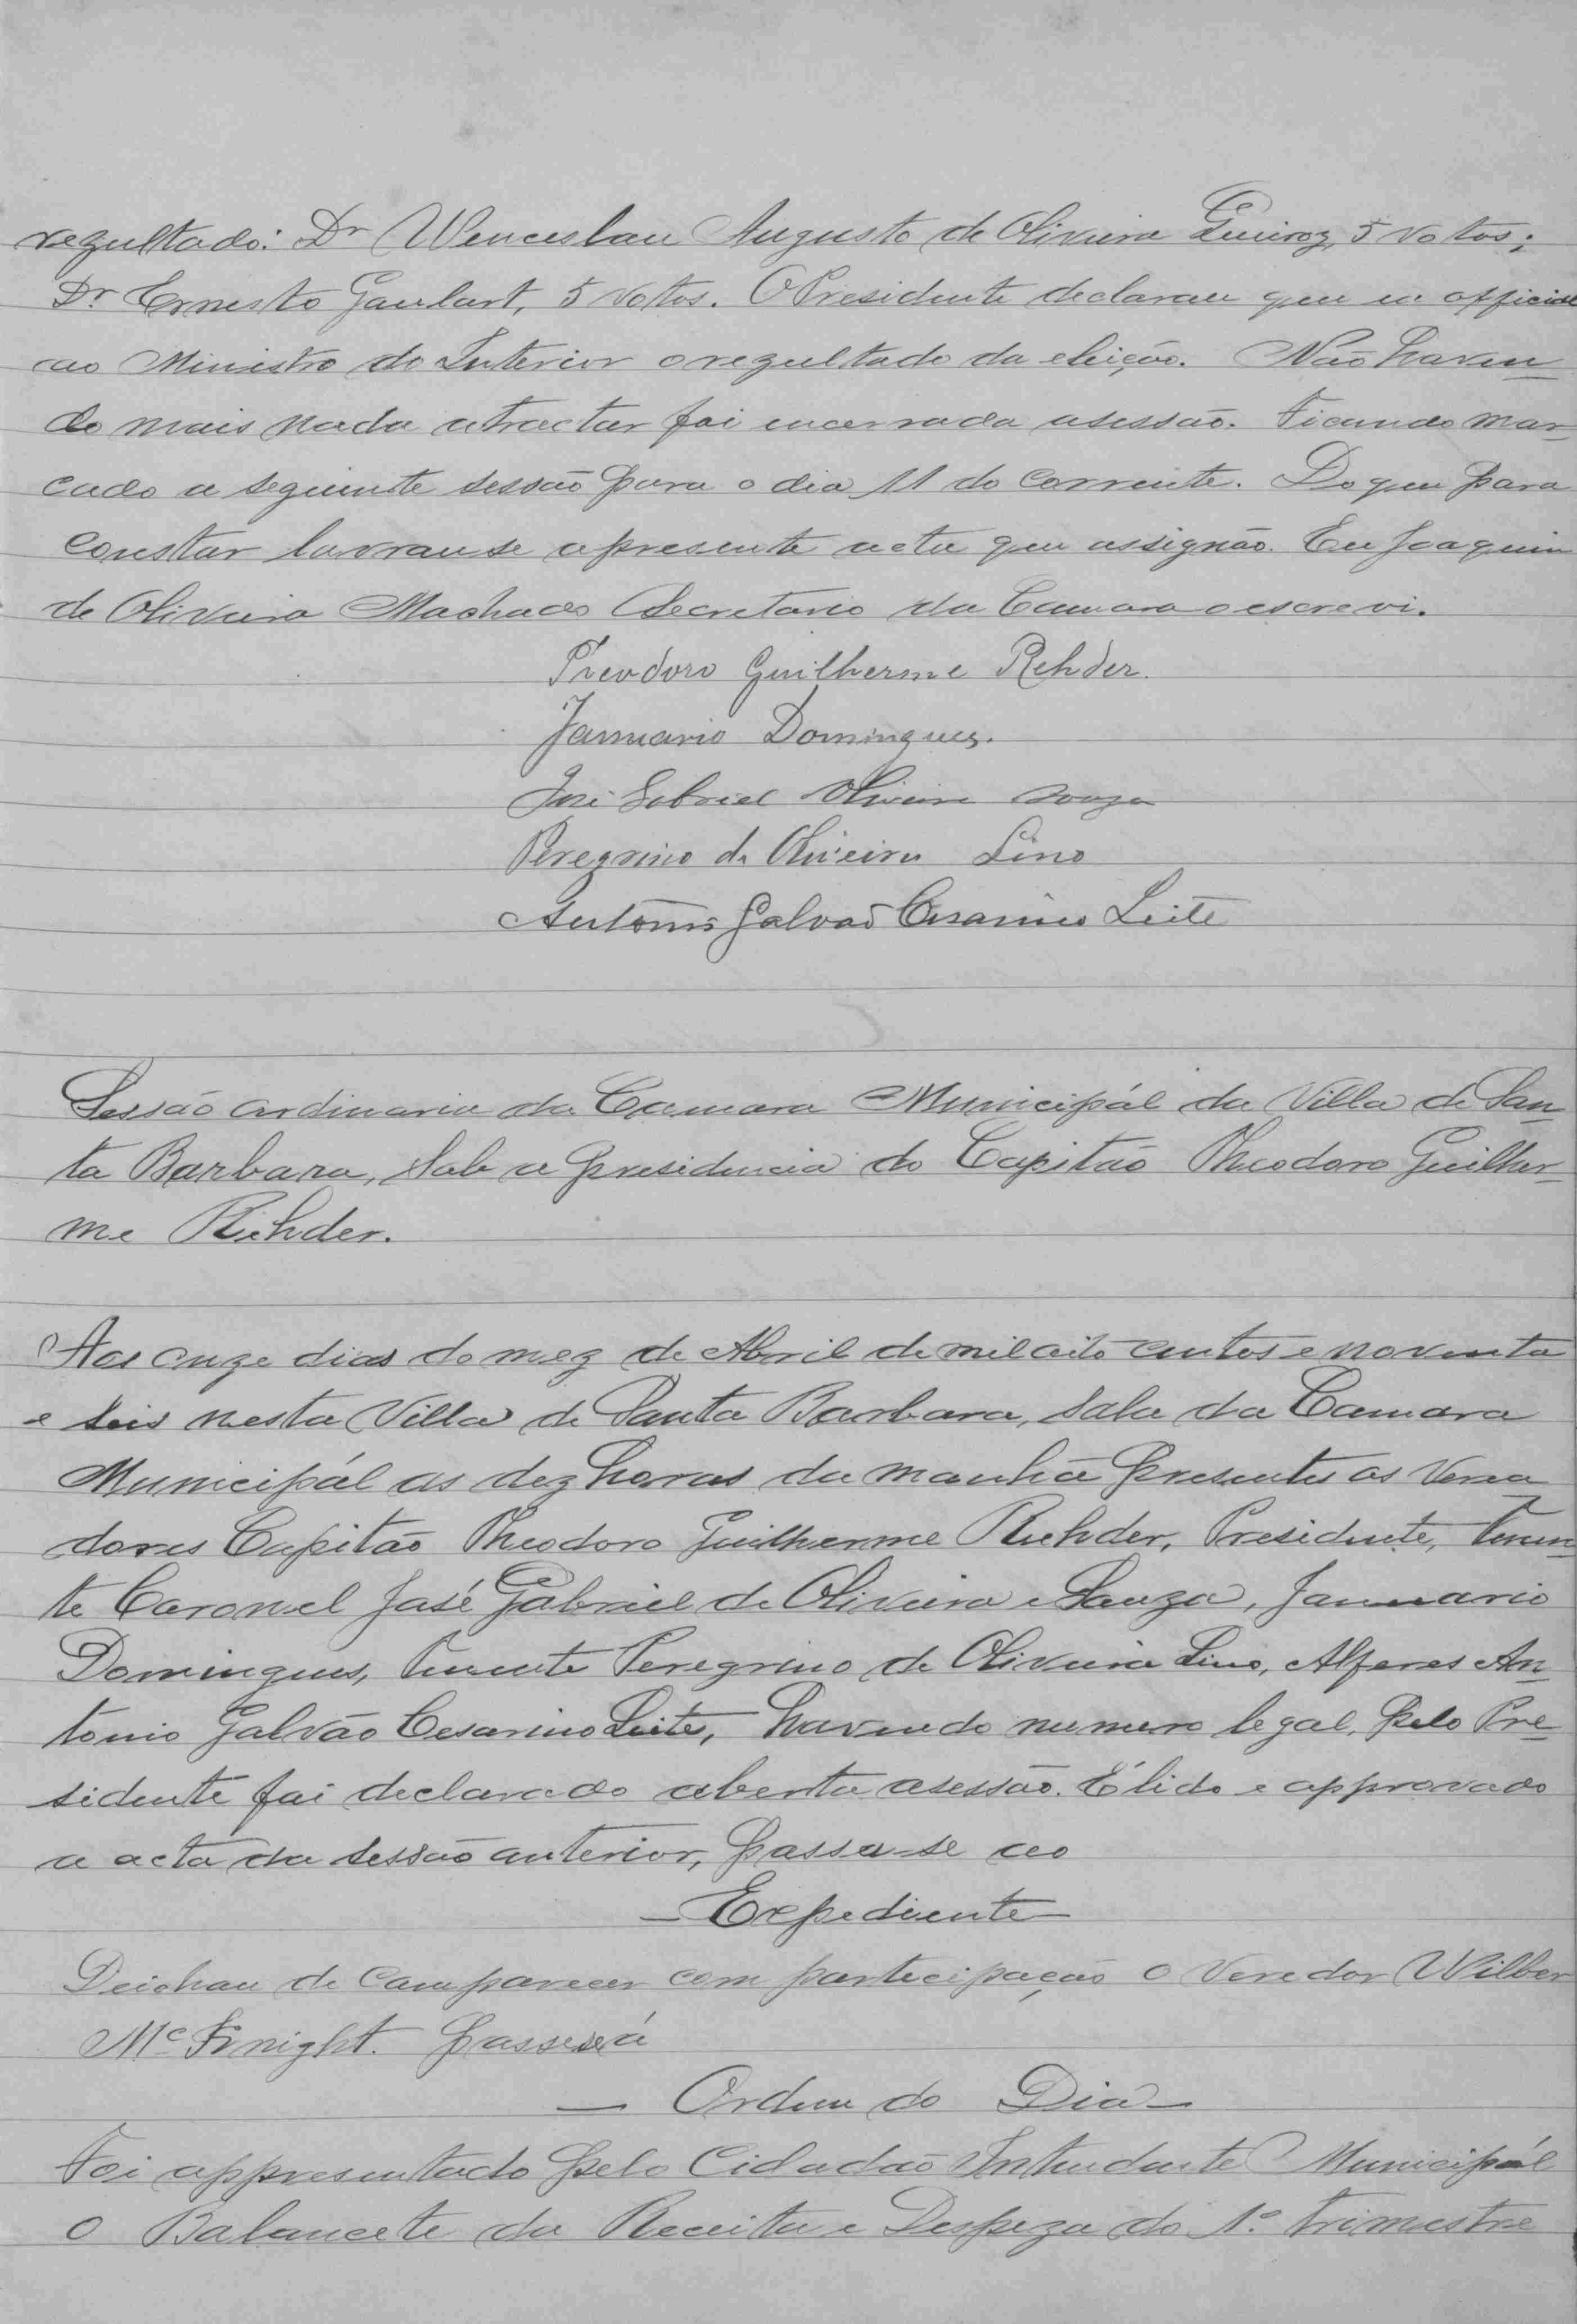 rezultado: Dr Wenceslau Augusto de Oliveira Queiroz, 5 votos;
Dr. Ernesto Goulart, 5 votos. O Presidente declarou que ia officiar
ao Ministro do Interior o rezultado da eleição. Não haven
do mais nada atractar foi encerrada asessão. Ficando mar-
cado a seguinte sessão para o dia 11 do corrente. Do que para
constar lavrouse apresente acta que assignão. Eu Joaquim
de Oliveira Machado Secretario da Camara o escrevi.
Theodoro Guilherme Rehder.
Januario Domingues.
José Gabriel Oliveira Souza
Peregrino de Oliveira Lino
Antonio Galvão Cesarino Leite
Sessão ordinaria da Camara Municipál da Villa de San
ta Barbara, Sob a presidencia do Capitão Theodoro Guilher-
me Rehder.
Aos onze dias do mez de Abril de mil oito centos e noventa
e seis nesta Villa de Santa Barbara, sala da Camara
Municipál as dez horas da manhã presentes os Verea
dores Capitão Theodoro Guilherme Rehder, Presidente, Tenen
te Coronel José Gabriel de Oliveira e Souza, Januario
Domingues, Tenente Peregrino de Oliveira Lino, Alferes An
tonio Galvão Cesarino Leite, havendo numero legal, pelo Pre-
sidente foi declarado aberta asessão. É lido e approvado
a acta da sessão anterior, passa-se ao
— Expediente —
Deichou de comparecer com participação o Veredor Wilber
McKnight. passeseá
— Ordem do Dia —
Foi appresentado pelo Cidadão Intendente Municipál
O Balancete da Receita e Despeza do 1º trimestre